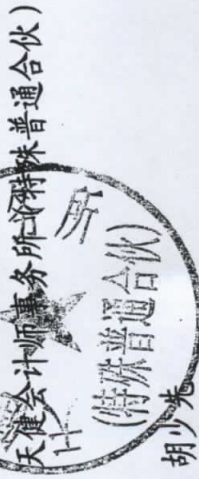 天健会计师事务所(特殊普通合伙)
所
(特殊普通合伙)
胡少先